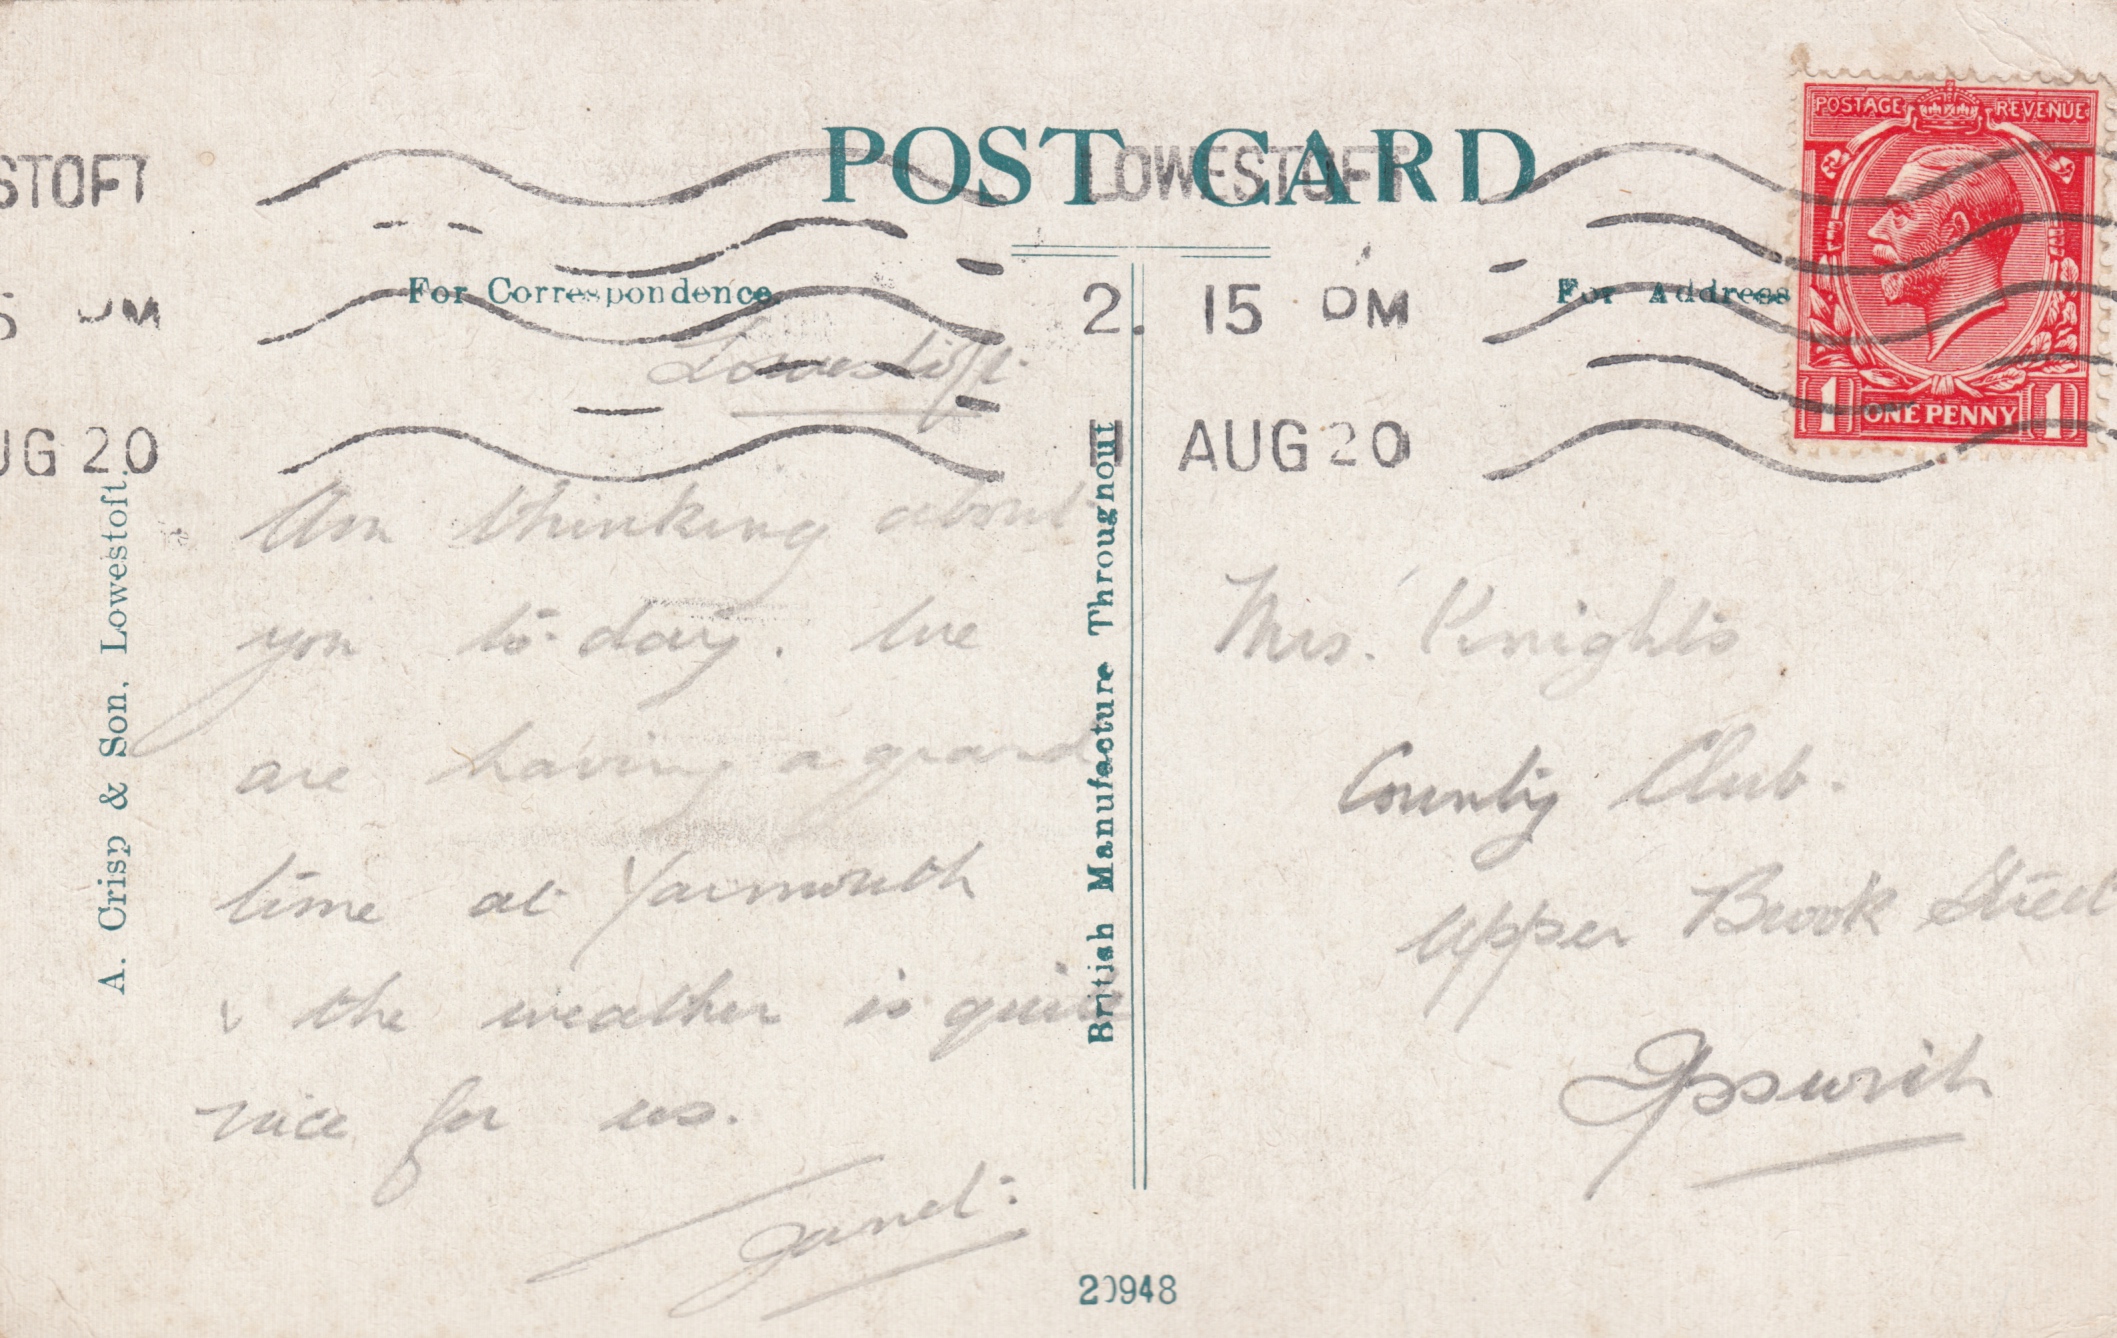 POST CARD
STOFT
LOWESTOFT
POSTAGE REVENUE
For Correspondence.
For Address
5 PM
2. 15 PM
Lowestoft.
1 ONE PENNY 1
UG 20
11 AUG 20
A. Crisp & Son, Lowestoft.
British Manufacture Throughout
Am thinking about
you to-day. We
are having a grand
time at Yarmouth
& the weather is quite
nice for us.
Janet.
Mrs. Knights
County Club.
Upper Brook Street
Ipswich
20948